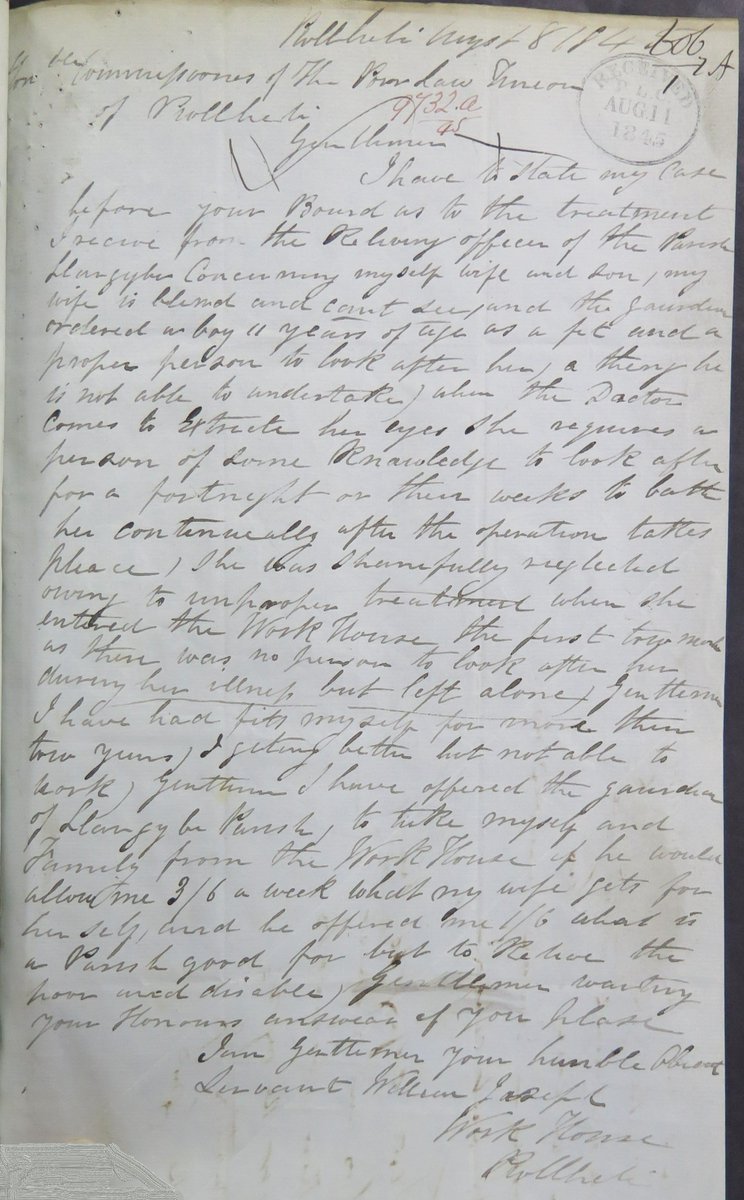 Pollheli Augst 8 184
606
2A
1
RECEIVED
P.L.C.
AUG 11
1845
Honble Commissiones of The Poor Law Union
of Pollheli
9732.a
45
Gentlemen
I have to state my Case
before your Bourd as to the treatment
I recive from the Reliving officer of the Parish
Llangybe Concerning myself wife and son, my
wife is blend and cant see, and the gaurdien
ordered a boy 11 years of age as a fit and a
proper person to look after her, a thing he
is not able to undertake) when the Doctor
Comes to Extracte her eyes She requires a
person of some Knowledge to look after
for a fortnight or their weeks to bath
her continually after the operation takes
pleace, She was Shamefully neglected
owing to unproper treatment when she
entered the Work House the first tow
as their was no person to look after her
during her illness but left alone) Gentlemen
I have had fits myself for more then
tow years) I geting better but not able to
work) Gentlemen I have offered the gaurdien
of Llangybe Parish, to take myself and
Family from the Work House if he would
allow me 3/6 a week what my wife gets for
her self, and he offered me 1/6 what is
a Parish good for but to Relieve the
poor and disable) Gentlemen waiting
your Honours answear if you plase
I am Gentlemen your humble Obient
Servant William Joseph
Work House
Pollheli